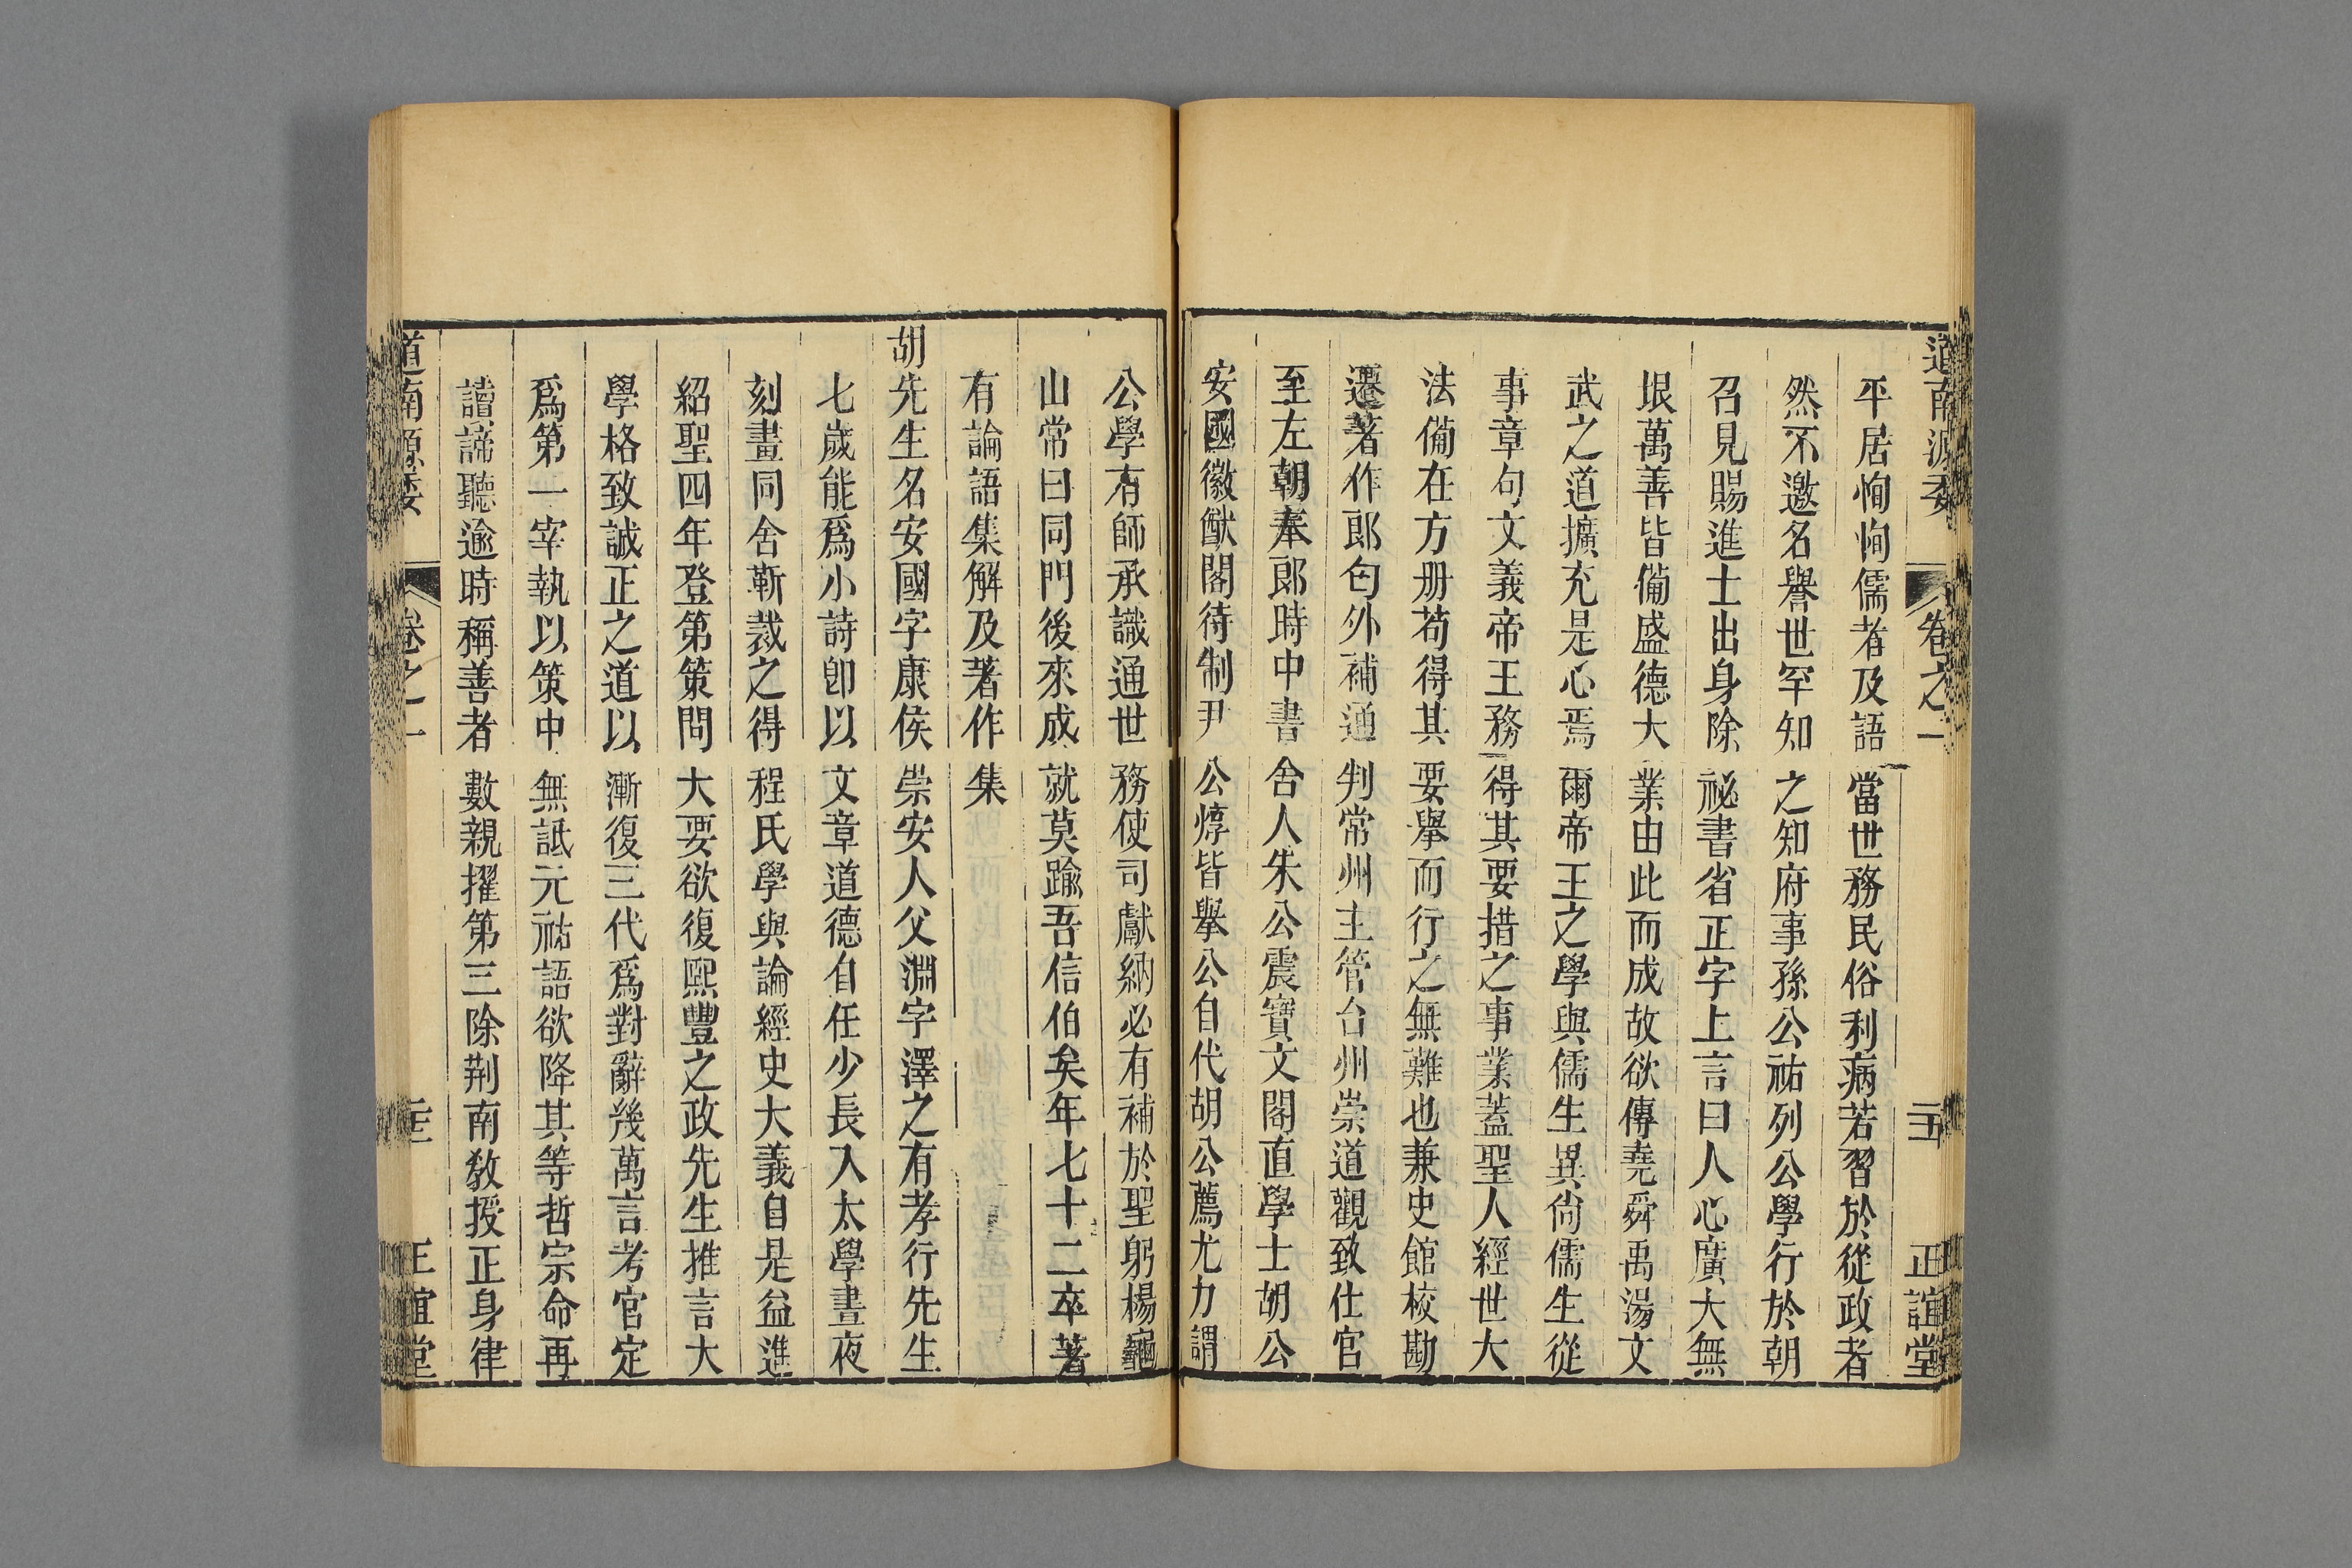 道南源委 卷之一 二五 正誼堂
平居恂恂儒者及語當世務民俗利病若習於從政者
然不邀名譽世罕知之知府事孫公祐列公學行於朝
召見賜進士出身除祕書省正字上言曰人心廣大無
垠萬善皆備盛德大業由此而成故欲傳堯舜禹湯文
武之道擴充是心焉爾帝王之學與儒生異尙儒生從
事章句文義帝王務得其要措之事業蓋聖人經世大
法備在方册苟得其要舉而行之無難也兼史館校勘
遷著作郎匄外補通判常州主管台州崇道觀致仕官
至左朝奉郎時中書舍人朱公震寶文閣直學士胡公
安國徽猷閣待制尹公焞皆舉公自代胡公薦尤力謂
公學有師承識通世務使司獻納必有補於聖躬楊龜
山常曰同門後來成就莫踰吾信伯矣年七十二卒著
有論語集解及著作集
胡先生名安國字康侯崇安人父淵字澤之有孝行先生
七歲能爲小詩卽以文章道德自任少長入太學晝夜
刻畫同舍靳裁之得程氏學與論經史大義自是益進
紹聖四年登第策問大要欲復熙豐之政先生推言大
學格致誠正之道以漸復三代爲對辭幾萬言考官定
爲第一宰執以策中無詆元祐語欲降其等哲宗命再
讀諦聽逾時稱善者數親擢第三除荆南敎授正身律
道南源委 卷之一 正誼堂